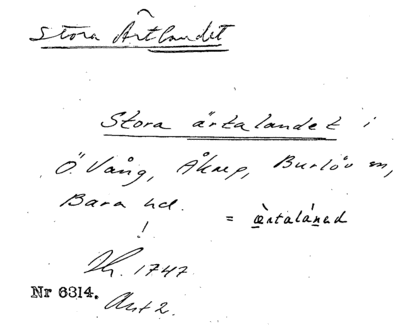 Stora Ärtlandet
Stora ärtalandet i
Ö. Vång, Åkarp, Burlöv sn,
Bara hd.
! = ærtaláned
Lh. 1747
Nr 6314. Akt 2.